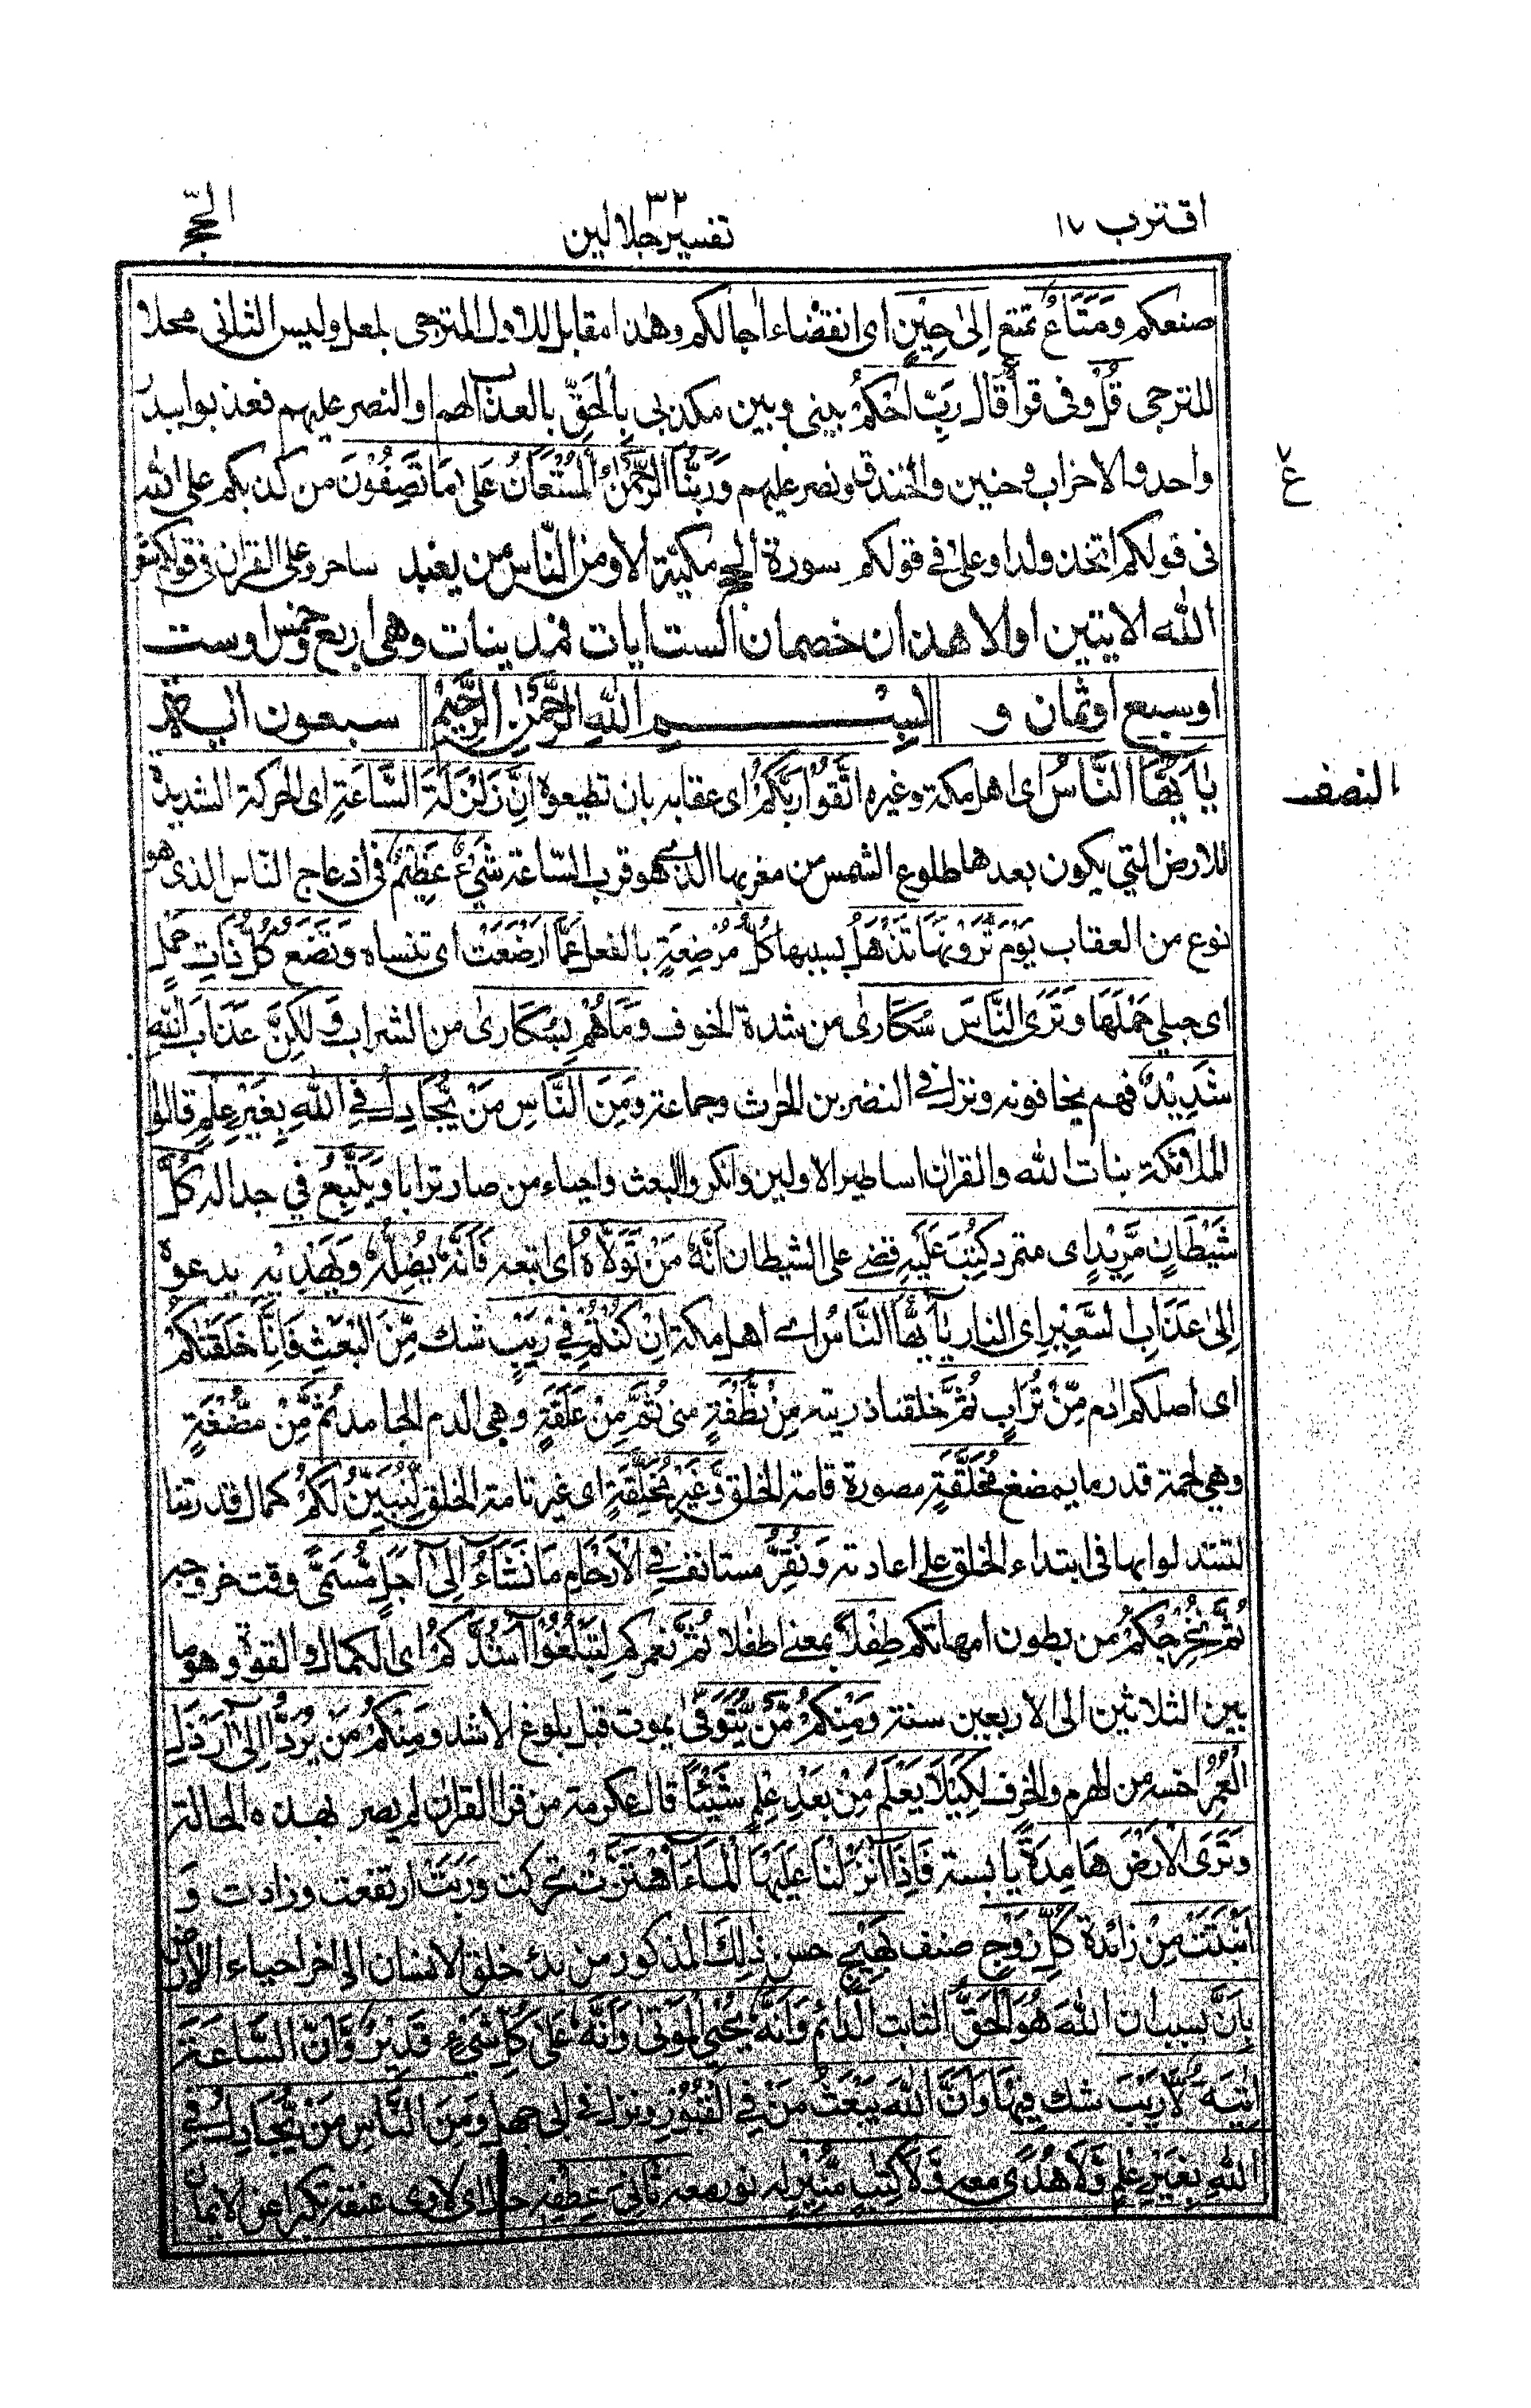 اقترب ١٧
٣٢
تفسير جلالين
الحج
صنعكم وَمَتَاعٌ تمتع اِلىٰ حِيْنٍ اى انقضاء اٰجالكم وهٰذا مقابل للاول المترجى بلعل وليس الثانى محلا
للترجى قُلْ وفى قرأة قَالَ رَبِّ احْكُمْ بينى وبين مكذبى بِالْحَقِّ بالعذاب لهم او النصر عليهم فعذبوا ببدر
واحد والاحزاب وحنين والخندق ونصر عليهم وَرَبُّنَا الرَّحْمٰنُ الْمُسْتَعَانُ عَلىٰ مَا تَصِفُوْنَ من كذبكم على الله
فى قولكم اتخذ ولدا وعلىّ فى قولكم ساحر وعلى القراٰن فى قولكم شعر
سورة الحج مكية الا ومن الناس من يعبد
الله الايتين اولا هذان خصمان الست ايات فمدينات وهى اربع وخمس اوست
اوسبع اوثمان و
بِسْــــــمِ اللهِ الرَّحْمٰنِ الرَّحِيْمِ
سبعون اية
يٰاَيُّهَا النَّاسُ اى اهل مكة وغيرهم اتَّقُوْا رَبَّكُمْ اى عقابه بان تطيعوه اِنَّ زَلْزَلَةَ السَّاعَةِ اى الحركة الشديدة
للارض التي يكون بعدها طلوع الشمس من مغربها الذى هو قرب السّاعة شَيْءٌ عَظِيْمٌ فى ازعاج النّاس الذى هو
نوع من العقاب يَوْمَ تَرَوْنَهَا تَذْهَلُ بسببها كُلُّ مُرْضِعَةٍ بالفعل عَمَّا اَرْضَعَتْ اى تنساه وَتَضَعُ كُلُّ ذَاتِ حَمْلٍ
اى حبلى حَمْلَهَا وَتَرَى النَّاسَ سُكَارىٰ من شدة الخوف وَمَا هُمْ بِسُكَارىٰ من الشراب وَلٰكِنَّ عَذَابَ اللهِ
شَدِيْدٌ فهم يخافونه ونزل فى النضر بن الحرث وجماعة وَمِنَ النَّاسِ مَنْ يُّجَادِلُ فِي اللهِ بِغَيْرِ عِلْمٍ قالوا
الملائكة بنات الله والقراٰن اساطير الاولين وانكروا البعث واحياء من صار ترابا وَيَتَّبِعُ في جداله كُلَّ
شَيْطَانٍ مَّرِيْدٍ اى متمرد كُتِبَ عَلَيْهِ قضى على الشيطان اَنَّهٗ مَنْ تَوَلَّاهُ اى اتبعه فَاَنَّهٗ يُضِلُّهٗ وَيَهْدِيْهِ يدعوه
اِلىٰ عَذَابِ السَّعِيْرِ اى النار يٰاَيُّهَا النَّاسُ اى اهل مكة اِنْ كُنْتُمْ فِيْ رَيْبٍ شك مِّنَ الْبَعْثِ فَاِنَّا خَلَقْنٰكُمْ
اى اصلكم اٰدم مِّنْ تُرَابٍ ثُمَّ خلقنا ذريته مِنْ نُّطْفَةٍ منى ثُمَّ مِنْ عَلَقَةٍ وهى الدم الجامد ثُمَّ مِنْ مُّضْغَةٍ
وهي لحمة قدر ما يمضغ مُّخَلَّقَةٍ مصورة تامة الخلق وَّغَيْرِ مُخَلَّقَةٍ اى غير تامة الخلق لِّنُبَيِّنَ لَكُمْ كمال قدرتنا
لتستدلوا بها فى ابتداء الخلق على اعادته وَنُقِرُّ مستانف فِي الْاَرْحَامِ مَا نَشَاءُ اِلىٰ اَجَلٍ مُّسَمًّى وقت خروجه
ثُمَّ نُخْرِجُكُمْ من بطون امهاتكم طِفْلًا بمعنى اطفالا ثُمَّ نعمركم لِتَبْلُغُوْا اَشُدَّكُمْ اى الكمال والقوة وهو ما
بين الثلاثين الى الاربعين سنة وَمِنْكُمْ مَّنْ يُّتَوَفّٰى يموت قبل بلوغ الاشد وَمِنْكُمْ مَنْ يُرَدُّ اِلىٰ اَرْذَلِ
الْعُمُرِ اخسه من الهرم والخرف لِكَيْلَا يَعْلَمَ مِنْ بَعْدِ عِلْمٍ شَيْئًا قال عكرمة من قرأ القراٰن لم يصر بهذه الحالة
وَتَرَى الْاَرْضَ هَامِدَةً يابسة فَاِذَا اَنْزَلْنَا عَلَيْهَا الْمَاءَ اهْتَزَّتْ تحركت وَرَبَتْ ارتفعت وزادت وَ
اَنْبَتَتْ مِنْ زائدة كُلِّ زَوْجٍ صنف بَهِيْجٍ حسن ذٰلِكَ المذكور من بدء خلق الانسان الى اخر احياء الارض
بِاَنَّ بسبب ان اللهَ هُوَ الْحَقُّ الثابت الدائم وَاَنَّهٗ يُحْيِ الْمَوْتىٰ وَاَنَّهٗ عَلىٰ كُلِّ شَيْءٍ قَدِيْرٌ وَّاَنَّ السَّاعَةَ
اٰتِيَةٌ لَّا رَيْبَ شك فِيْهَا وَاَنَّ اللهَ يَبْعَثُ مَنْ فِي الْقُبُوْرِ ونزل فى ابى جهل وَمِنَ النَّاسِ مَنْ يُّجَادِلُ فِي
اللهِ بِغَيْرِ عِلْمٍ وَّلَا هُدًى معه وَّلَا كِتٰبٍ مُّنِيْرٍ له نور معه ثَانِيَ عِطْفِهٖ حال اى لاوى عنقه تكبرا عن الايمان
ع
النصف